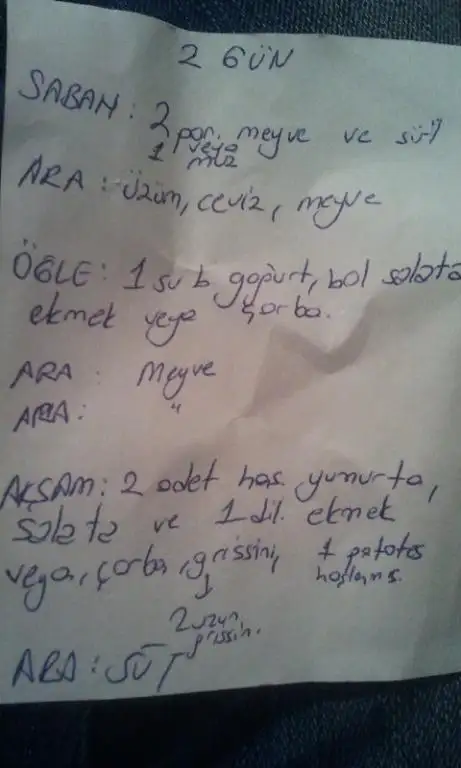 2 GÜN
SABAH: 2 por. meyve ve süt
1 veya muz
ARA: üzüm, ceviz, meyve
ÖĞLE: 1 su b. yoğurt, bol salata
ekmek veya çorba.
ARA: Meyve
ARA: "
AKŞAM: 2 adet haş. yumurta,
salata ve 1 dil. ekmek
veya, çorba, grissini, 1 patates
haşlanş.
2 uzun
grissin.
ARA: SÜT